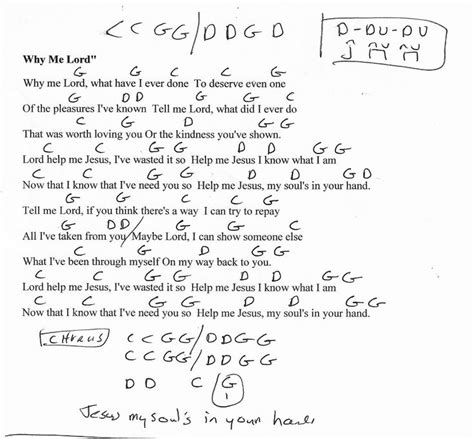 C C G G / D D G D
D - DU - DU
Why Me Lord"
G G C C G
Why me Lord, what have I ever done To deserve even one
G D D G G C
Of the pleasures I've known Tell me Lord, what did I ever do
C G D G G
That was worth loving you Or the kindness you've shown.
C C G G D D G G
Lord help me Jesus, I've wasted it so Help me Jesus I know what I am
C C G G D D G D
Now that I know that I've need you so Help me Jesus, my soul's in your hand.
G G C C G
Tell me Lord, if you think there's a way I can try to repay
G D D / G G C
All I've taken from you Maybe Lord, I can show someone else
C G D G G
What I've been through myself On my way back to you.
C C G G D D G G
Lord help me Jesus, I've wasted it so Help me Jesus I know what I am
C C G G D D G G
Now that I know that I've need you so Help me Jesus, my soul's in your hand.
CHRUS C C G G / D D G G
C C G G / D D G G
D D C G
1
Jesus my soul's in your hand